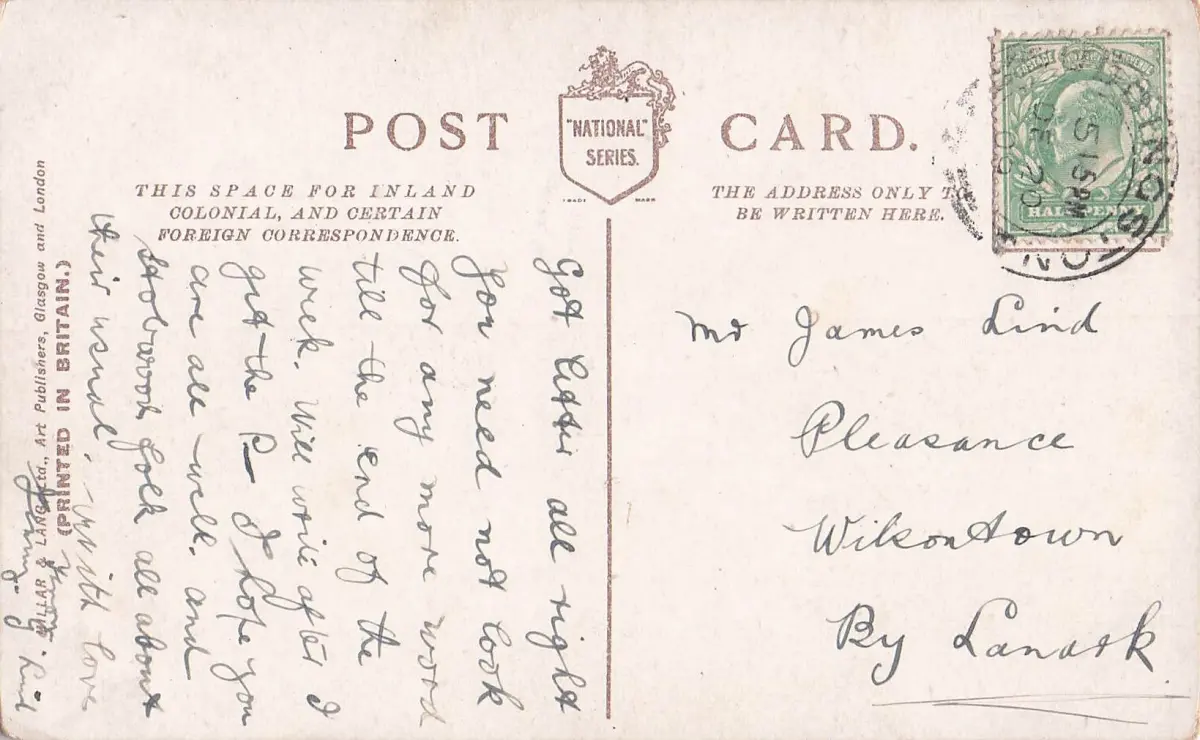 POST CARD.
"NATIONAL"
SERIES.
TRADE MARK
THIS SPACE FOR INLAND
COLONIAL, AND CERTAIN
FOREIGN CORRESPONDENCE.
THE ADDRESS ONLY TO
BE WRITTEN HERE.
POSTAGE REVENUE
HALFPENNY
5 15 PM
DE 20
09
Got letter all right
you need not look
for any more word
till the end of the
week. Will write after I
get the P— I hope you
are all well. and
folk all about
their usual. With love
from
Lind
Mr James Lind
Pleasance
Wilsontown
By Lanark
MILLAR & LANG, Ltd., Art Publishers, Glasgow and London
(PRINTED IN BRITAIN.)